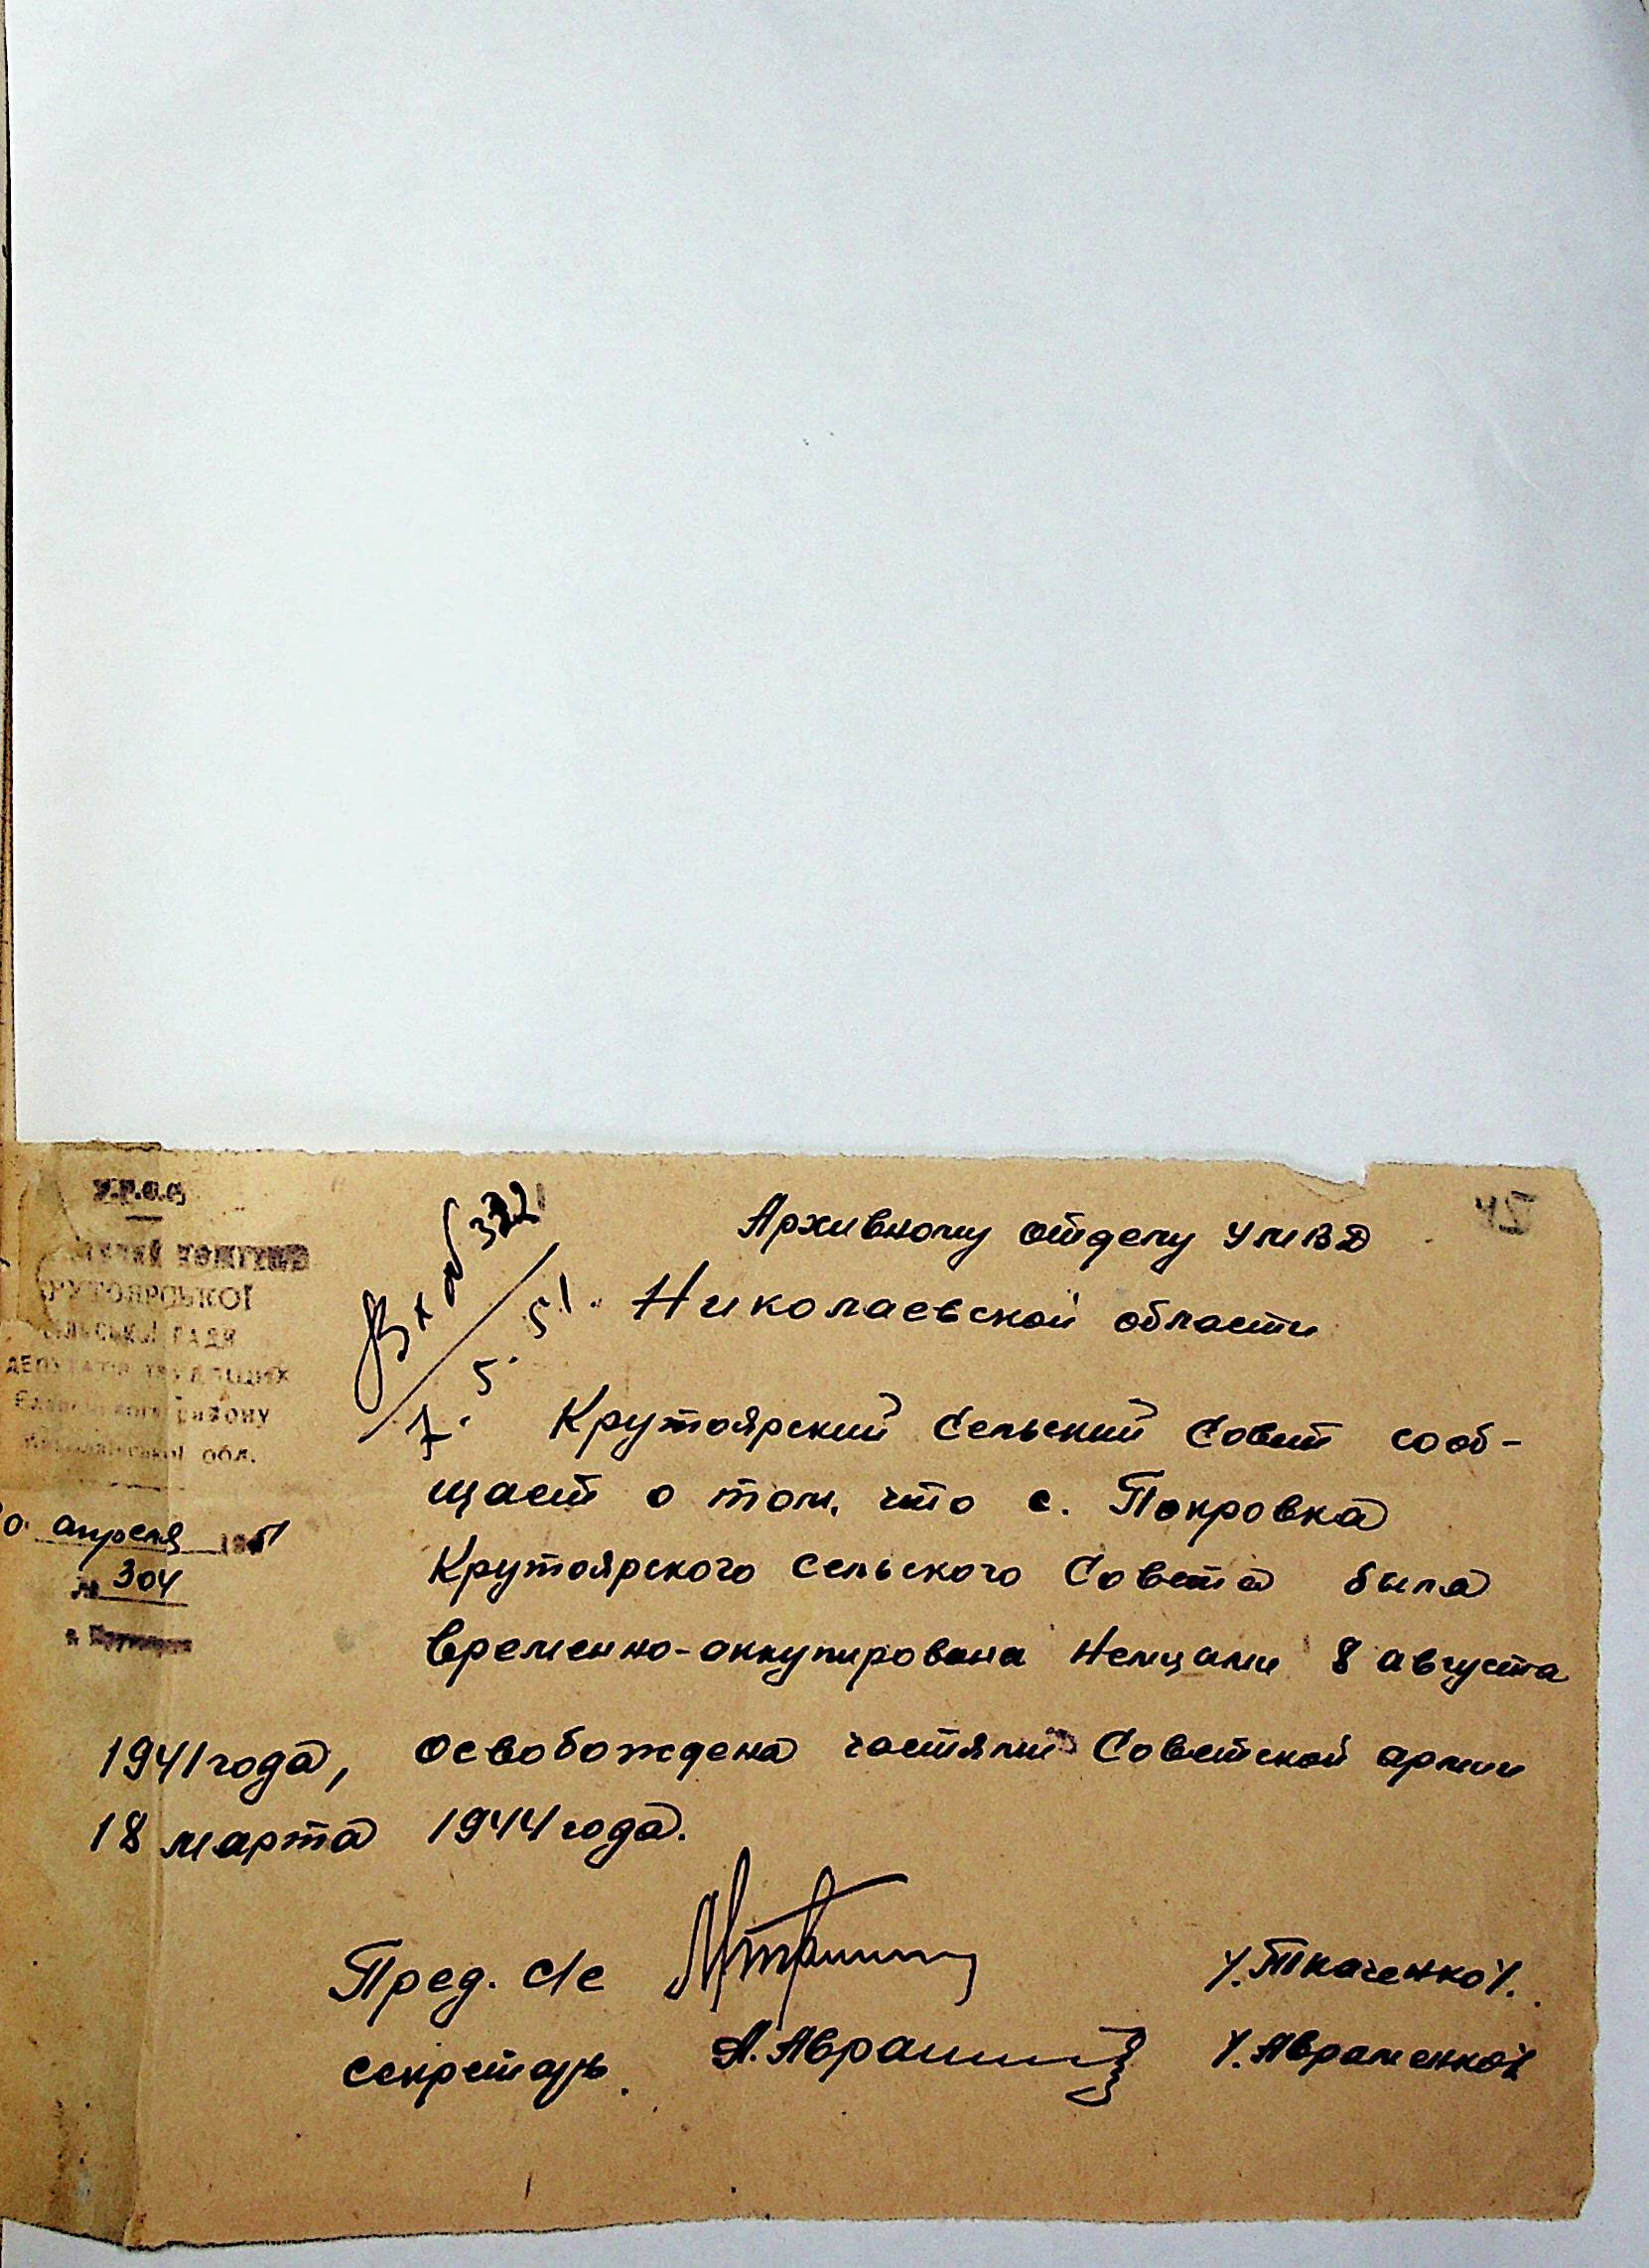 У.Р.С.Р.
КРУТОЯРСЬКОЇ
СІЛЬСЬКОЇ РАДИ
ДЕПУТАТІВ ТРУДЯЩИХ
району
обл.
апреля 1951
№ 304
Вх № 322
7. 5. 51.
Архивному отделу УМВД
Николаевской области
Крутоярский Сельский Совет сооб-
щает о том, что с. Покровка
Крутоярского сельского Совета была
временно-оккупирована Немцами 8 августа
1941 года, освобождена частями Советской армии
18 марта 1944 года.
Пред. с/с /.Ткаченко/.
секретарь А. Авраменко /.Авраменко/